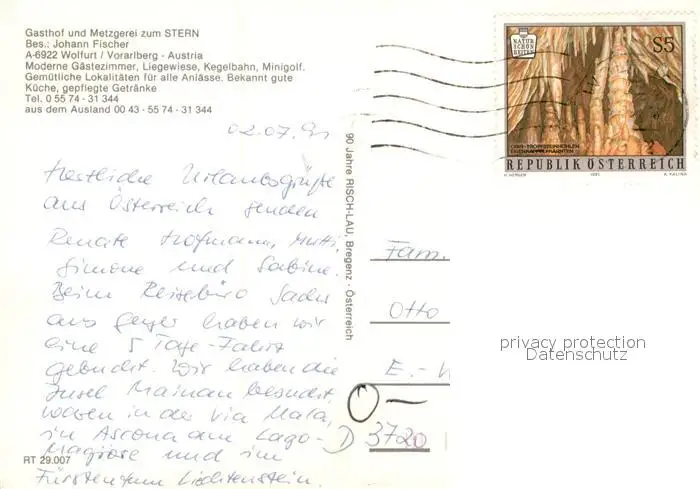 Gasthof und Metzgerei zum STERN
Bes.: Johann Fischer
A-6922 Wolfurt / Vorarlberg - Austria
Moderne Gästezimmer, Liegewiese, Kegelbahn, Minigolf.
Gemütliche Lokalitäten für alle Anlässe. Bekannt gute
Küche, gepflegte Getränke
Tel. 0 55 74 - 31 344
aus dem Ausland 00 43 - 55 74 - 31 344
02.07.91
Herzliche Urlaubsgrüße
aus Österreich senden
Renate Hofmann, Mutti,
Simone und Sabine.
Beim Reisebüro Sachs
aus Geyer haben wir
eine 5 Tage-Fahrt
gebucht. Wir haben die
Insel Mainau besucht,
waren in der Via Mala,
in Ascona am Lago-
Magiore und im
Fürstentum Liechtenstein.
RT 29.007
90 Jahre RISCH-LAU, Bregenz · Österreich
NATUR
SCHÖN
HEITEN
S5
OBIR-TROPFSTEINHÖHLEN
EISENKAPPEL/KÄRNTEN
REPUBLIK ÖSTERREICH
1991
A. KALINA
Fam.
Otto
E.-
O—
D 3720
privacy protection
Datenschutz